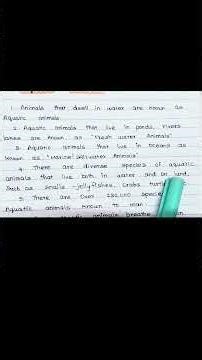 1. Animals that dwell in water are known as
Aquatic animals
2. Aquatic animals that live in ponds, rivers
lakes are known as "Fresh water Animals"
3. Aquatic animals that live in oceans as
known as "Marine/ Saltwater Animals"
4. There are diverse species of aquatic
animals that live both in water and on land
Such as snails jellyfishes, crabs
5. There are over
Aquatic animals known to man
animals breathe